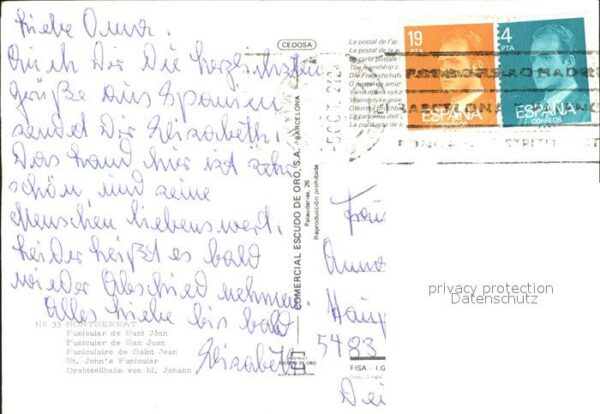 Liebe Oma.
Auch Dir Die herzlichsten
Grüße aus Spanien
sendet Dir Elisabeth.
Das Land hier ist sehr
schön und seine
Menschen liebenswert.
Leider heißt es bald
wieder Abschied nehmen.
Alles Liebe bis bald
Elisabeth
No 33 MONTSERRAT
Funicular de Sant Jôan
Funicular de San Juan
Funiculaire de Saint Jean
St. John's Funicular
Drahtseilbahn von hl. Johann
CEDOSA
COMERCIAL ESCUDO DE ORO, S.A. - BARCELONA
Palaudarias, 26
Reproducción prohibida
ESCUDO DE ORO
La postal de
La postal de l'a
La carte postale
The friendship
Die Freundschaf
19
PTA
ESPAÑA
4
PTA
ESPAÑA
CORREOS
OCT
BARCELONA
Anna
5483
FISA - I.G.
privacy protection
Datenschutz